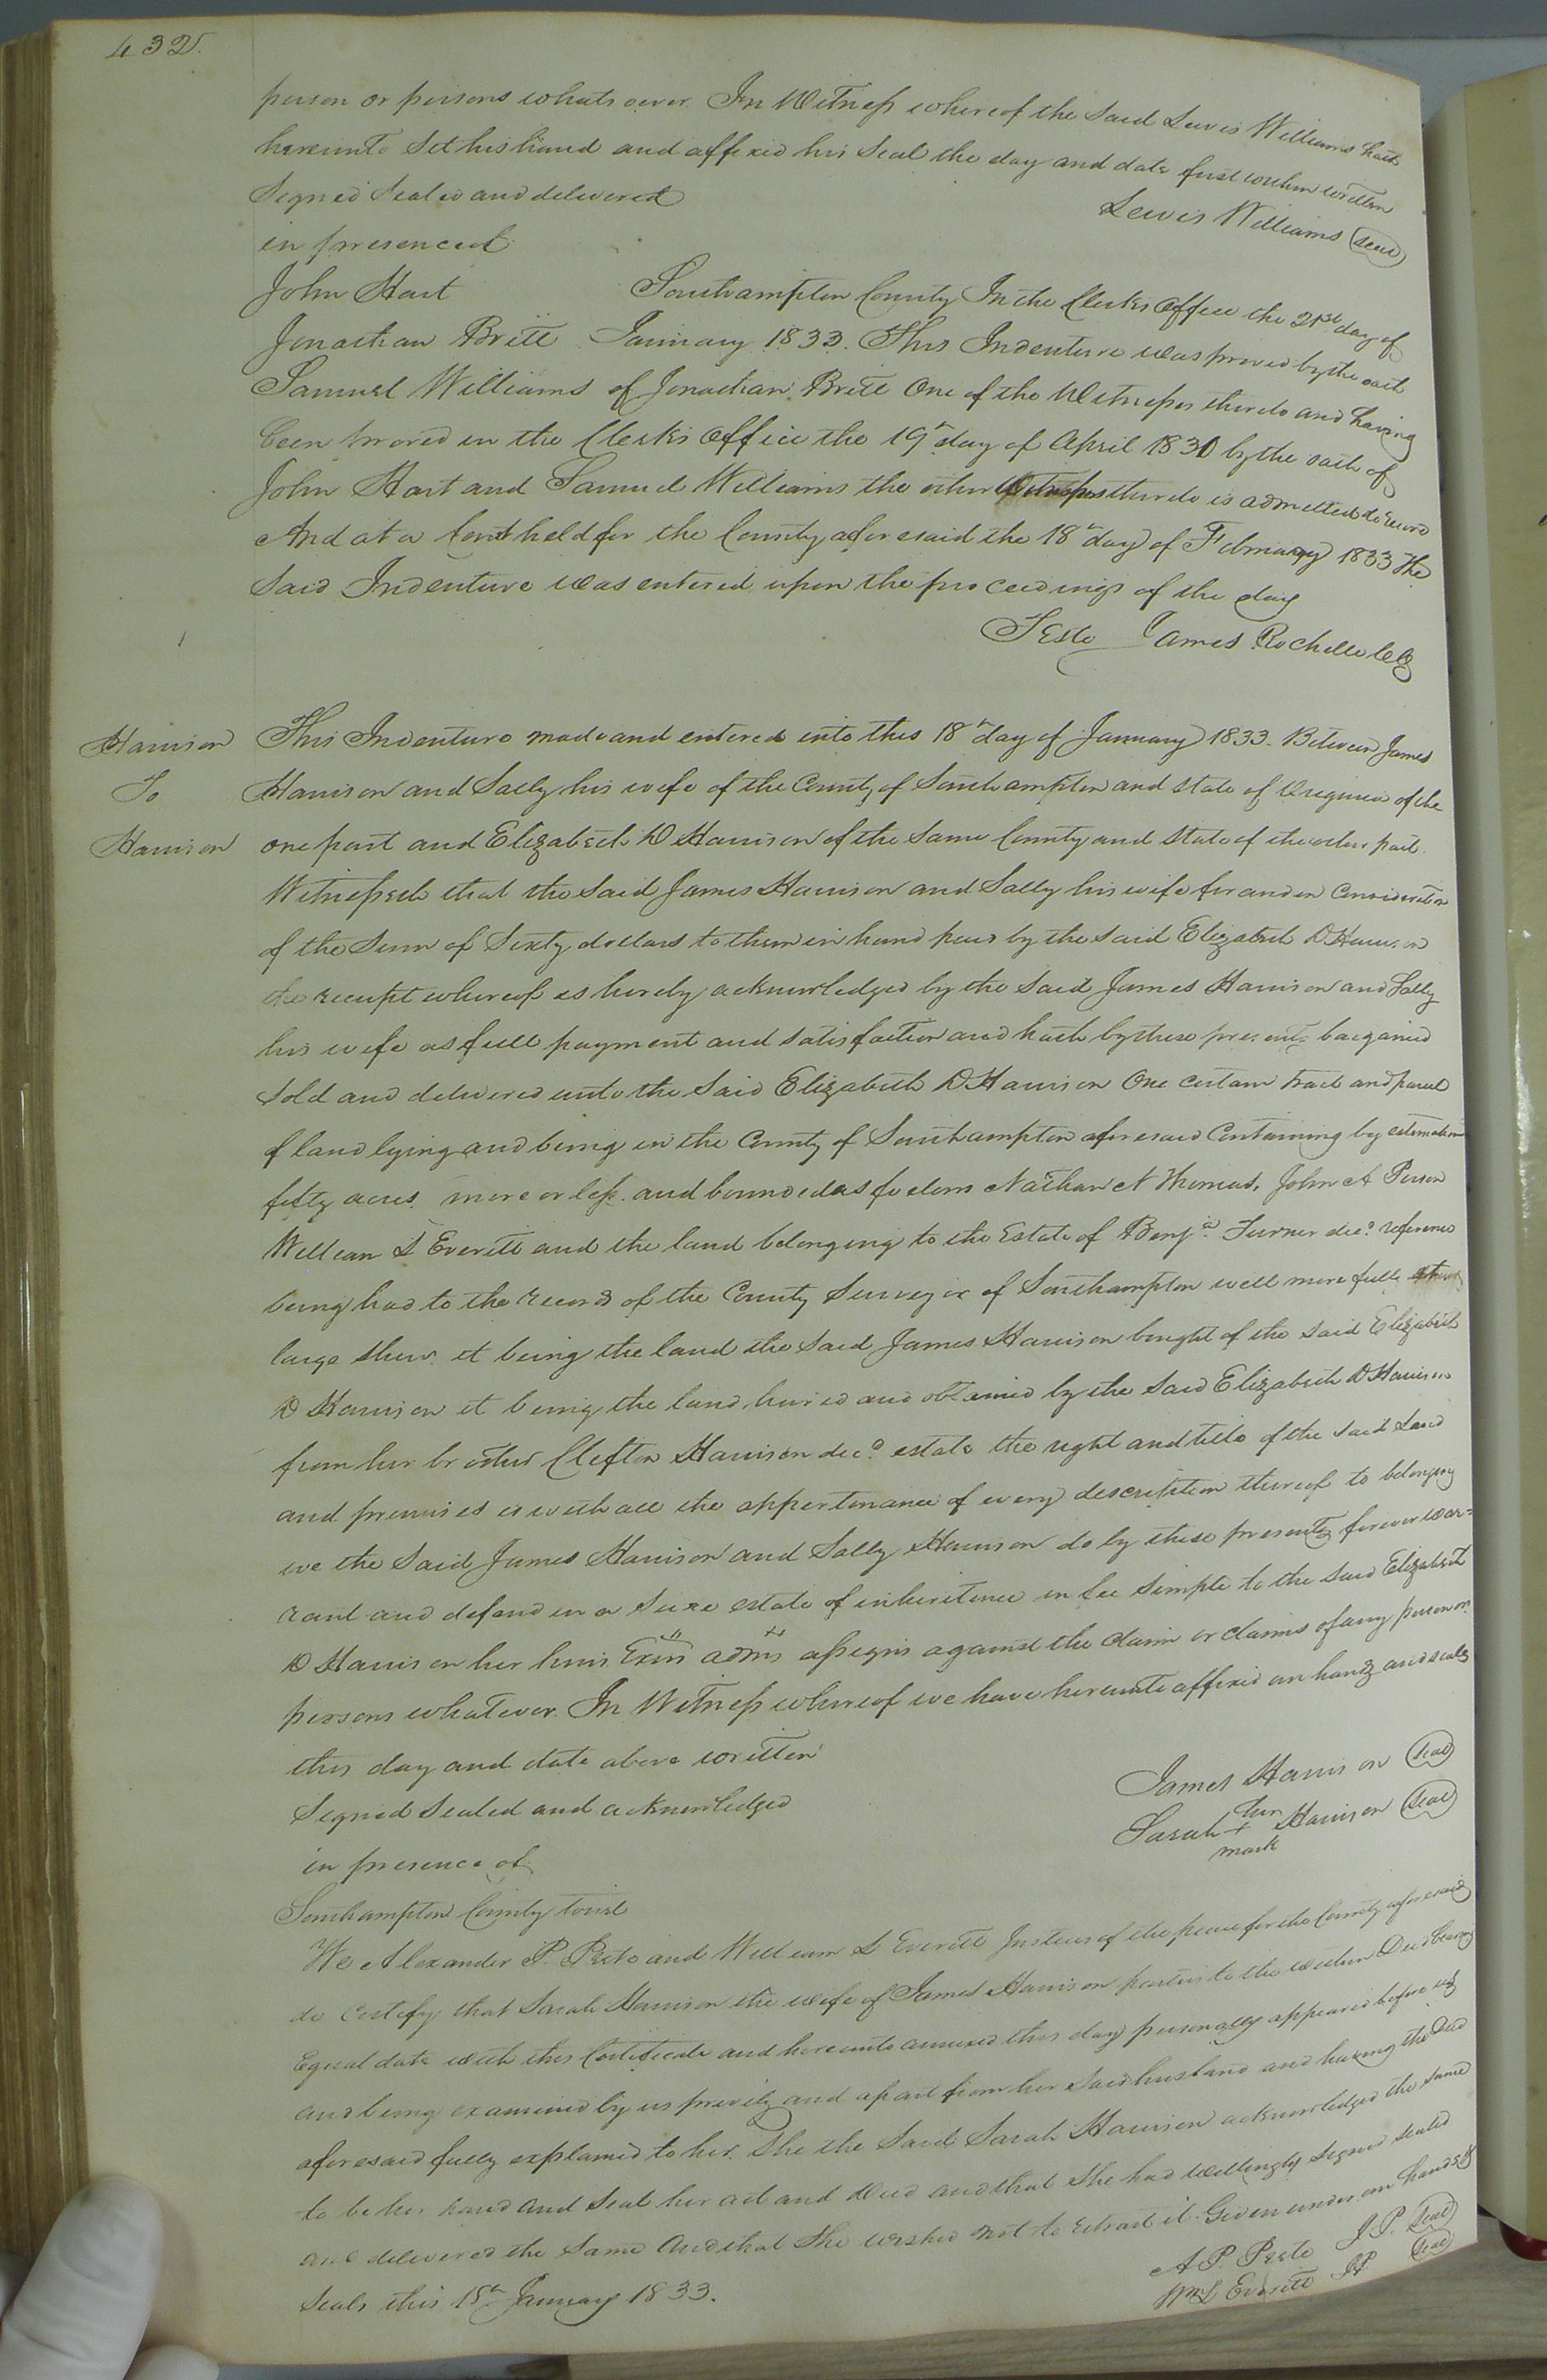 432.
person or persons whatsoever. In Witness whereof the said Lewis Williams hath
hereunto Set his hand and affixed his Seal the day and date first within written
Signed Sealed and delivered
Lewis Williams (Seal)
in presence of
John Hart
Southampton County In the Clerks Office the 21st day of
Jonathan Britt
January 1833. This Indenture was proved by the oath
Samuel Williams
of Jonathan Britt One of the Witnesses thereto and having
been proved in the Clerks Office the 19th day of April 1831 by the oath of
John Hart and Samuel Williams the other Witnesses thereto is admitted to record
And at a Court held for the County aforesaid the 18th day of February 1833 The
Said Indenture was entered upon the proceedings of the day
Teste James Rochelle CC
Harrison
To
Harrison
This Indenture made and entered into this 18th day of January 1833. Between James
Harrison and Sally his wife of the County of Southampton and State of Virginia of the
one part and Elizabeth D Harrison of the Same County and State of the other part.
Witnesseth that the Said James Harrison and Sally his wife for and in Consideration
of the Sum of Sixty dollars to them in hand paid by the Said Elizabeth D Harrison
the receipt whereof is hereby acknowledged by the Said James Harrison and Sally
his wife as full payment and satisfaction and hath by these presents bargained
Sold and delivered unto the Said Elizabeth D Harrison One certain tract and parcel
of land lying and being in the County of Southampton aforesaid Containing by estimation
fifty acres more or less. and bounded as follows Nathan N Thomas, John A Person
William L Everitt and the land belonging to the Estate of Benja. Turner decd. reference
being had to the records of the County Surveyor of Southampton will more fully
large Shew. it being the land the Said James Harrison bought of the Said Elizabeth
D Harrison it being the land, heired and obtained by the Said Elizabeth D Harrison
from her brother Clifton Harrison decd. estate the right and title of the Said Land
and premises with all the appertenance of every description thereof to belonging
we the Said James Harrison and Sally Harrison do by these presents forever war=
rant and defend in a Sure estate of inheritance in fee Simple to the Said Elizabeth
D Harrison her heirs Exrs adms assigns against the claim or claims of any person or
persons whatever. In Witness whereof we have hereunto affixed our hands and seals
this day and date above written
Signed Sealed and acknowledged
James Harrison (Seal)
in presence of
Sarah her + mark Harrison (Seal)
Southampton County towit
We Alexander P. Peete and William L Everitt Justices of the peace for the County aforesaid
do certify that Sarah Harrison the wife of James Harrison parties to the within Deed bearing
Equal date with this Certificate and hereunto annexed this day personally appeared before us
and being examined by us privily and apart from her Said husband and having the Deed
aforesaid fully explained to her. She the Said Sarah Harrison acknowledged the Same
to be her hand and Seal her act and Deed and that She had willingly Signed Sealed
and delivered the Same And that She wished not to retract it. Given under our hands &
Seals this 18th January 1833.
A P. Peete J. P. (Seal)
Wm L Everitt J.P. (Seal)